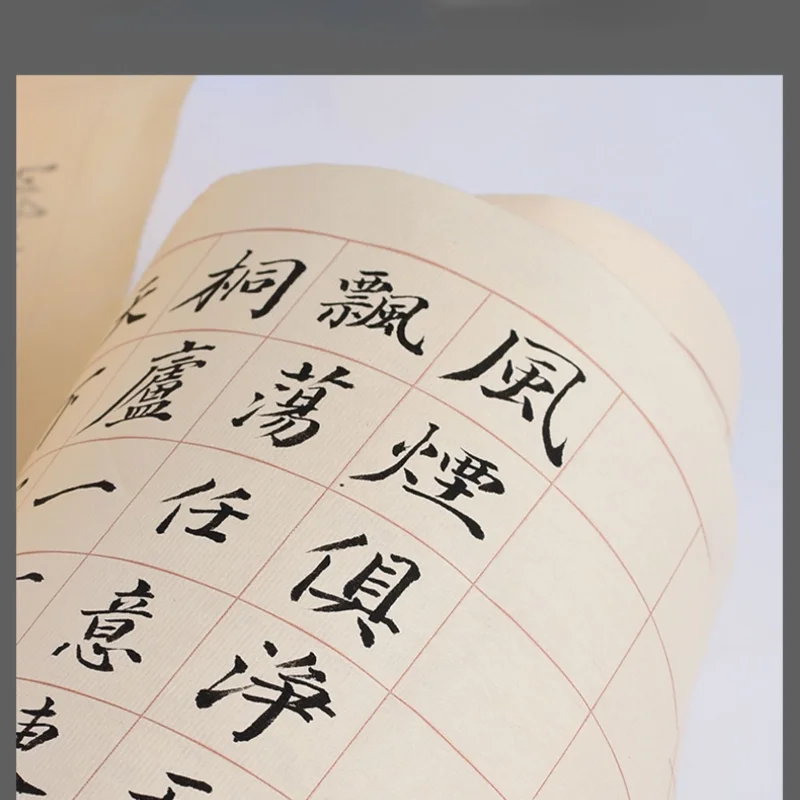 風煙俱淨
飄蕩任意東
桐廬一